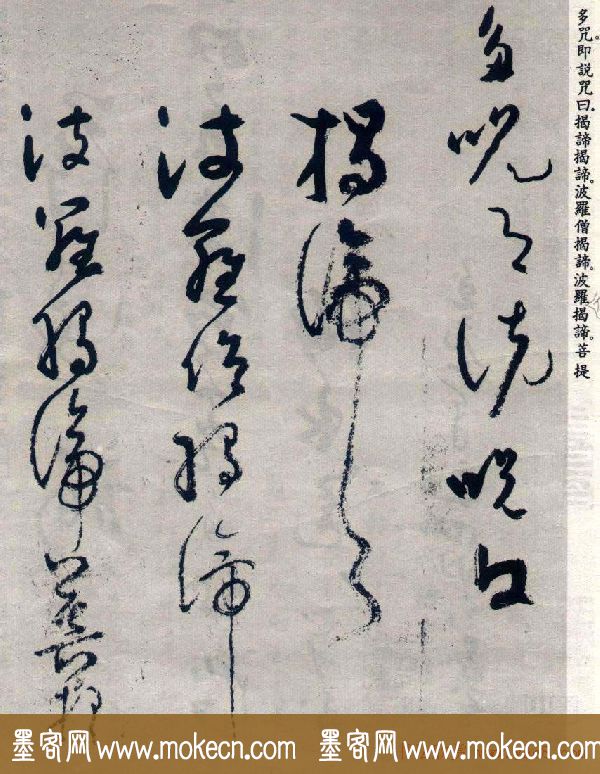 多咒。即說咒曰。揭諦揭諦。波羅僧揭諦。波羅揭諦。菩提
多咒即說咒曰
揭諦々
波羅僧揭諦
波羅揭諦菩提
墨客网 www.mokecn.com 墨客网 www.mokecn.com